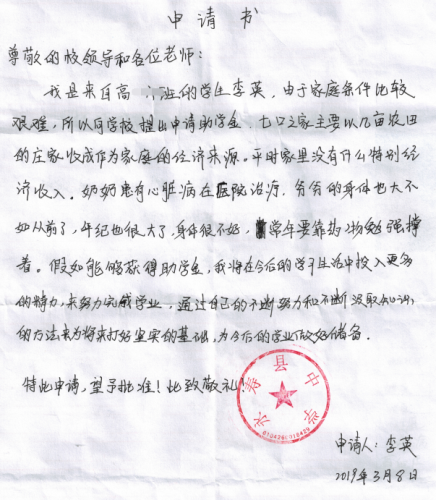 申请书
尊敬的校领导和各位老师：
我是来自高 班的学生李英，由于家庭条件比较
艰难，所以向学校提出申请助学金，七口之家主要以几亩农田
的庄家收成作为家庭的经济来源。平时家里没有什么特别经
济收入。奶奶患有心脏病在医院治疗，爷爷的身体也大不
如从前了，年纪也很大了，身体很不好，常年要靠药物勉强撑
着。假如能够获得助学金，我将在今后的学习生活中投入更多
的精力，来努力完成学业，通过自己的不断努力和不断汲取知识
的方法来为将来打好坚实的基础，为今后的学业做好储备。
特此申请，望予批准！此致敬礼！
永寿县中学
申请人：李英
2019年3月8日